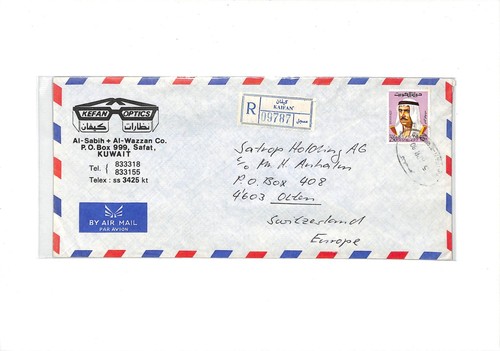 KEFAN OPTICS
نظارات كيفان
Al-Sabih + Al-Wazzan Co.
P.O.Box 999, Safat,
KUWAIT
Tel. ( 833318
833155
Telex : ss 3425 kt
BY AIR MAIL
PAR AVION
R
كيفان
KAIFAN
09787
مسجل
دولة الكويت
Satrap Holding AG
c/o Mr. H. Anhalm
P.O. Box 408
4603 Olten
Switzerland
Europe